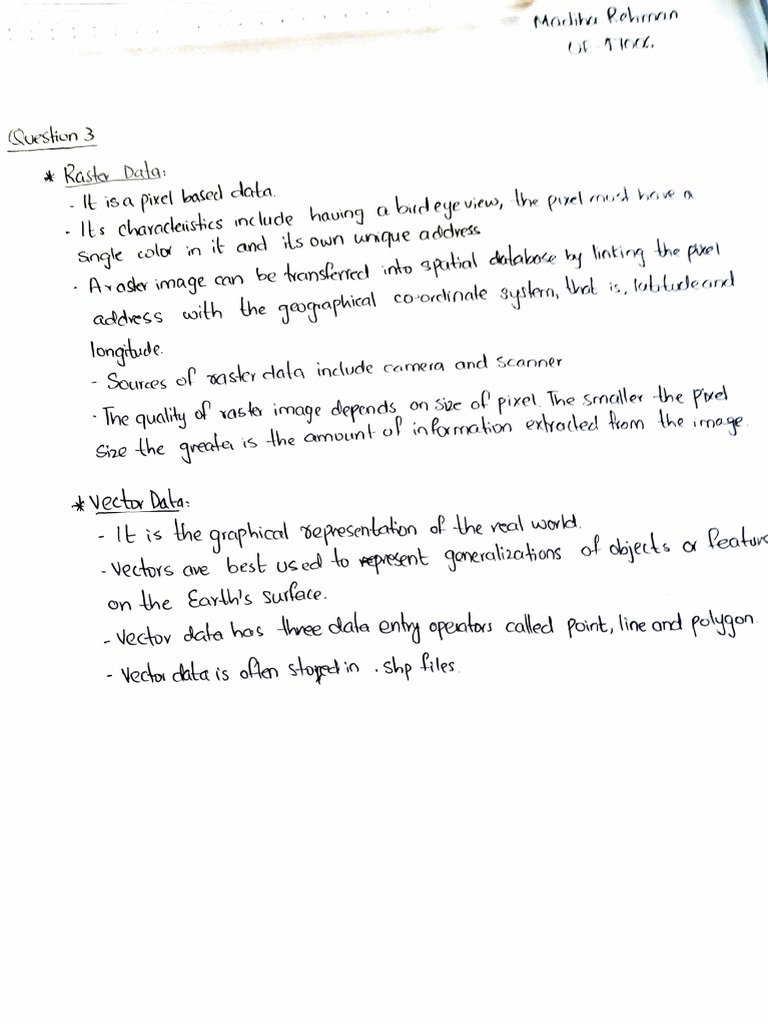 Madiha Rehman
Question 3
* Raster Data:
- It is a pixel based data.
- Its characteristics include having a bird eye view, the pixel must have a
single color in it and its own unique address
- A raster image can be transferred into spatial database by linking the pixel
address with the geographical co-ordinate system, that is, latitude and
longitude.
- Sources of raster data include camera and scanner
- The quality of raster image depends on size of pixel. The smaller the pixel
size the greater is the amount of information extracted from the image.
* Vector Data:
- It is the graphical representation of the real world.
- Vectors are best used to represent generalizations of objects or feature
on the Earth's surface.
- Vector data has three data entry operators called point, line and polygon.
- Vector data is often stored in .shp files.